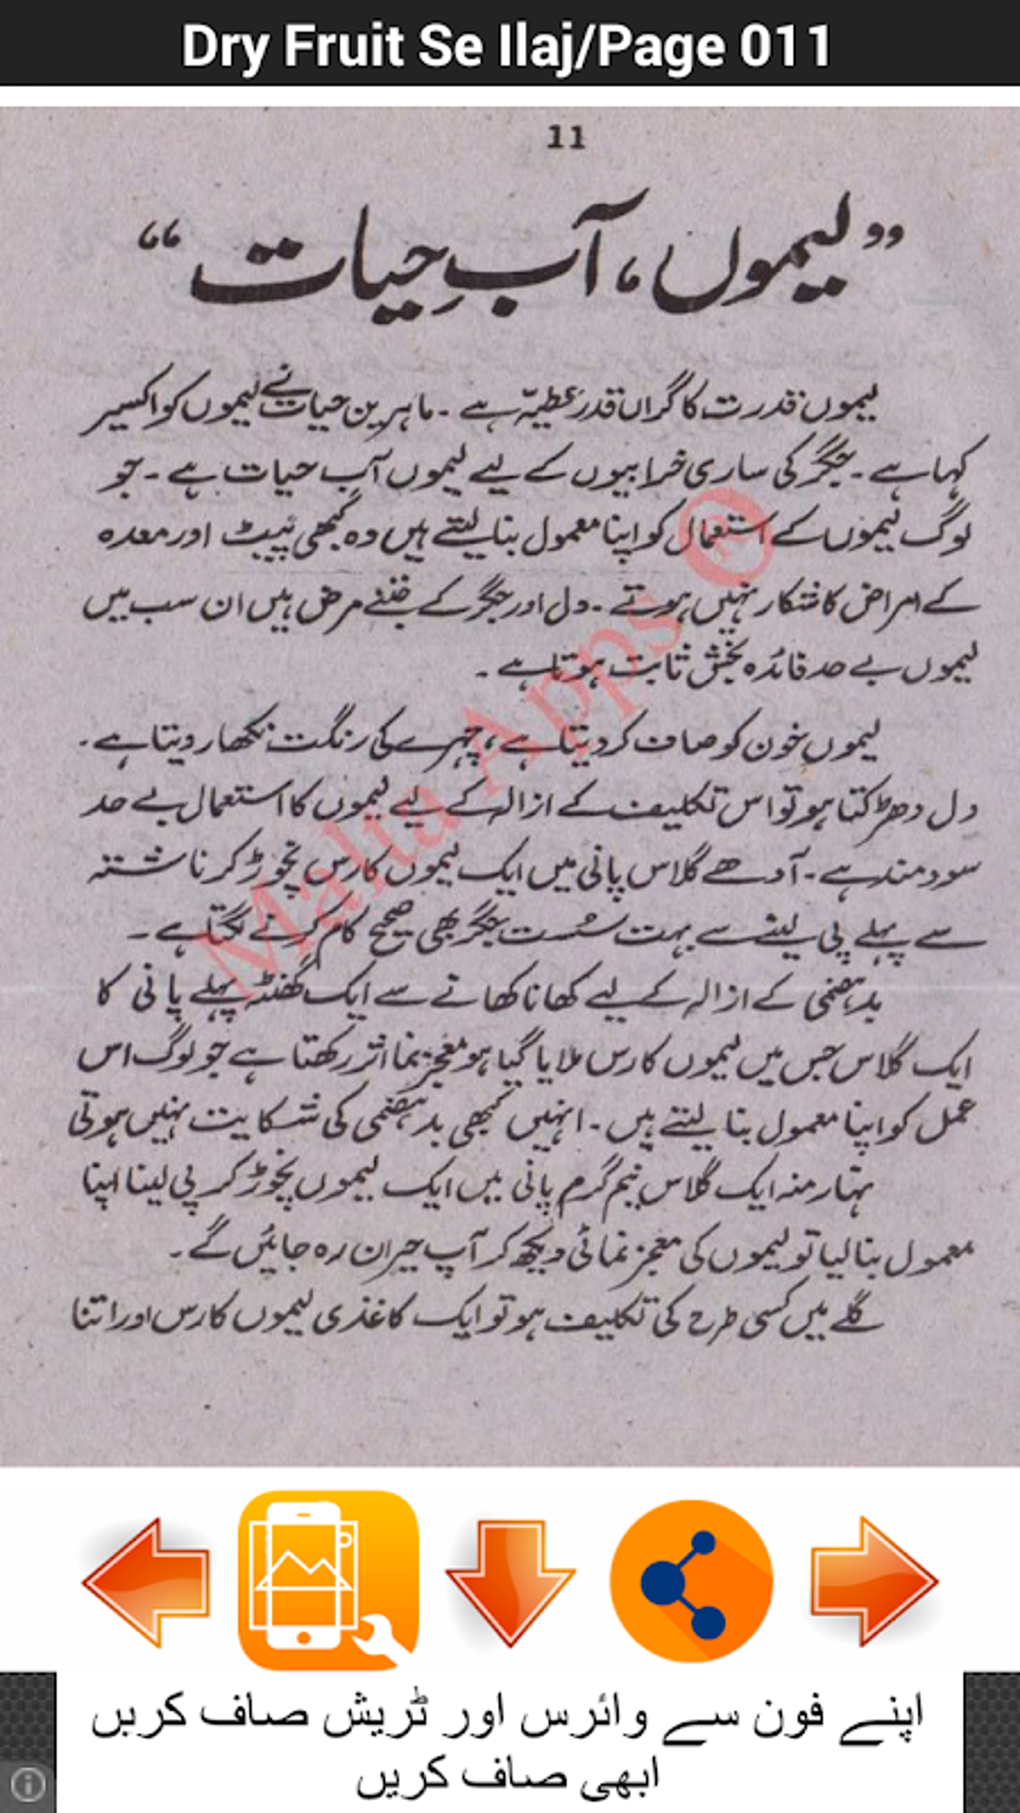 Dry Fruit Se Ilaj/Page 011
11
”لیموں، آبِ حیات“
لیموں قدرت کا گراں قدر عطیہّ ہے ۔ ماہرین حیات نے لیموں کو اکسیر
کہا ہے ۔ جگر کی ساری خرابیوں کے لیے لیموں آب حیات ہے ۔ جو
لوگ لیموں کے استعمال کو اپنا معمول بنا لیتے ہیں وہ کبھی پیٹ اور معدہ
کے امراض کا شکار نہیں ہوتے ۔ دل اور جگر کے جتنے مرض ہیں ان سب میں
لیموں بے حد فائدہ بخش ثابت ہوتا ہے ۔
لیموں خون کو صاف کر دیتا ہے ، چہرے کی رنگت نکھار دیتا ہے ۔
دل دھڑکتا ہو تو اس تکلیف کے ازالہ کے لیے لیموں کا استعمال بے حد
سود مند ہے ۔ آدھے گلاس پانی میں ایک لیموں کا رس نچوڑ کر ناشتہ
سے پہلے پی لینے سے بہت سُست جگر بھی صحیح کام کرنے لگتا ہے ۔
بدہضمی کے ازالہ کے لیے کھانا کھانے سے ایک گھنٹہ پہلے پانی کا
ایک گلاس جس میں لیموں کا رس ملایا گیا ہو معجز نما اثر رکھتا ہے جو لوگ اس
عمل کو اپنا معمول بنا لیتے ہیں ۔ انہیں کبھی بدہضمی کی شکایت نہیں ہوتی
نہار منہ ایک گلاس نیم گرم پانی میں ایک لیموں نچوڑ کر پی لینا اپنا
معمول بنا لیا تو لیموں کی معجز نمائی دیکھ کر آپ حیران رہ جائیں گے ۔
گلے میں کسی طرح کی تکلیف ہو تو ایک کاغذی لیموں کا رس اور اتنا
Malta Apps ®
اپنے فون سے وائرس اور ٹریش صاف کریں
ابھی صاف کریں